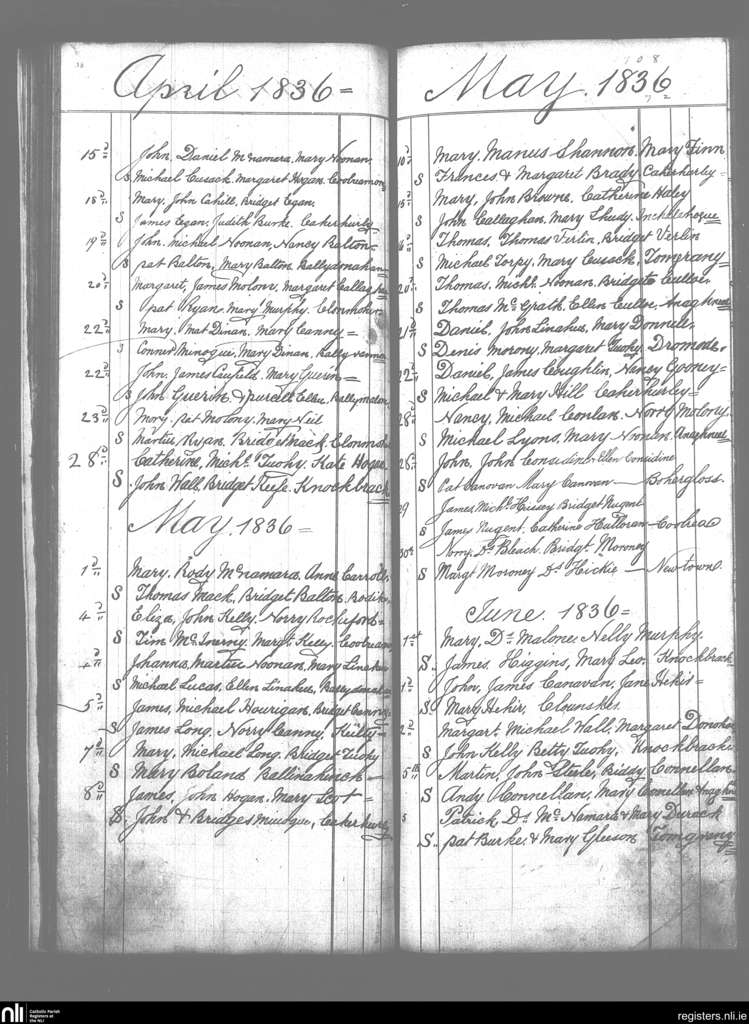 April 1836 =
15 d John, Daniel McNamara, Mary Noonan
S Michael Cusack, Margaret Hogan, Coolreamon
18 d Mary, John Cahill, Bridget Egan
S James Egan, Judith Burke, Cakerhurly
19 d John, Michael Noonan, Nancy Balton
S pat Balton, Mary Balton Ballydonahan
20 d Margaret, James Molony, Margaret
S pat Ryan, Mary Murphy, Clonmoher
22 d Mary, Mat Dinan, Mary Canney =
S Conner Minogue, Mary Dinan,
22 d John, James Mary Guerin =
S John Guerin & purcell
23 d Mory, pat Molony, Mary Neil
S Martin Ryan, Bridget Mack, Clonmoher
28 d Catherine, Michl. Tuohy, Kate Hogan
S John Wall, Bridget Keefe, Knockbrack
May, 1836 =
1 d Mary, Rody McNamara, Anne Carroll
S Thomas Mack, Bridget Balton,
4 d Eliza, John Kelly, Norry Rocheford =
S Tim McInerny, Margt. Kelly,
4 d Johanna, Martin Noonan, Mary Linahan
S Michael Lucas, Ellen Linahan,
5 d James, Michael Hourigan, Bridget Canny
S James Long, Norry Canny, Kielty =
7 d Mary, Michael Long, Bridget Tuohy
S Mary Boland Ballinahinch =
8 d James, John Hogan, Mary Scot =
S John & Bridget Minogue, Cakerhurly
108
May, 1836
10 d Mary, Manus Shannon, Mary Finn
S Frances & Margaret Brady Cakerhurly =
15 d Mary, John Browne, Catherine Haley
S John Callaghan, Mary Shudy,
d Thomas, Thomas Verlin, Bridget Verlin
S Michael Torpy, Mary Cusack, Tomgrany
20 d Thomas, Michl. Noonan, Bridget
S Thomas McGrath, Ellen
21 d Daniel, John Linahan, Mary
S Denis Morony, Margaret Tuohy,
22 d Daniel, James Coughlin, Nancy Gooney =
S Michael & Mary Hill Cakerhurley =
28 d Nancy, Michael Conlan, Norry Molony
S Michael Lyons, Mary Noonan,
28 d John, John Considine Ellen Considine
S Pat Canovan Mary Canovan — Bohergloss
29 James, Michl. Hussey Bridget Nugent
S James Nugent, Catherine Halloran —
30th Norry, Ds. Bleach, Bridgt. Moroney
S Margt Moroney Ds. Hickie — Newtown
June, 1836 =
1st Mary, Ds. Malone, Nelly Murphy
S James Higgins, Mary Leo, Knockbrack
1 d John, James Canavan, Jane Hehir =
S Mary Hehir,
2 d Margart. Michael Wall, Margaret Donohoe
S John Kelly Betty Tuohy, Knockbrack
5th Martin, John Steele, Biddy Connellan
S Andy Connellan, Mary Conellan
5 Patrick Ds. McNamara & Mary Durack
S pat Burke, & Mary Gleeson Tomgrany
nli
Catholic Parish
Registers at
the NLI
registers.nli.ie